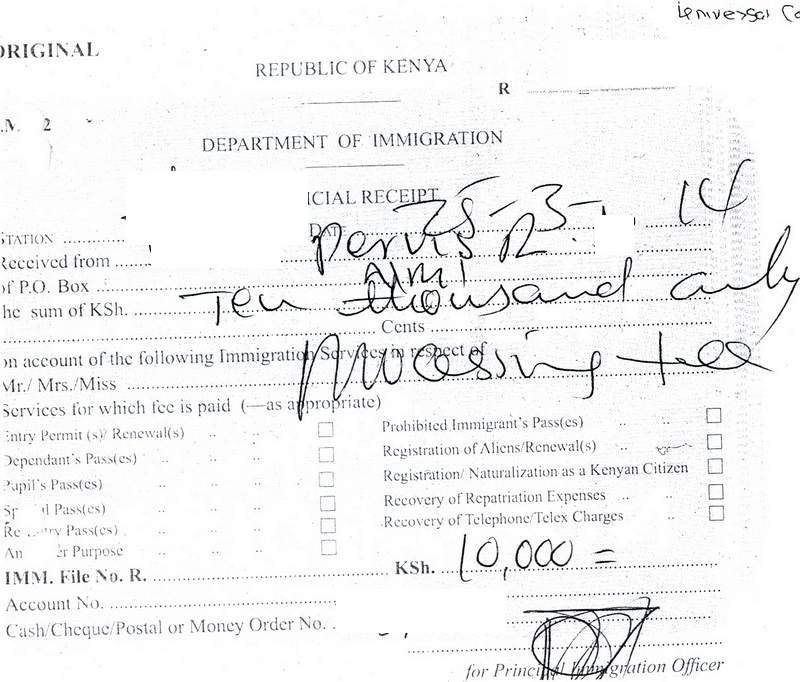 ORIGINAL
REPUBLIC OF KENYA
R
2
DEPARTMENT OF IMMIGRATION
ICIAL RECEIPT
STATION
DATE 25-3- 14
Received from Pervis R.
of P.O. Box
he sum of KSh. Ten thousand only
Cents
on account of the following Immigration Services in respect of
Mr./ Mrs./Miss Processing fee
Services for which fee is paid (—as appropriate)
Entry Permit (s)/ Renewal(s)
Dependant's Pass(es)
Pupil's Pass(es)
Pass(es)
Pass(es)
Purpose
Prohibited Immigrant's Pass(es)
Registration of Aliens/Renewal(s)
Registration/ Naturalization as a Kenyan Citizen
Recovery of Repatriation Expenses
Recovery of Telephone/Telex Charges
IMM. File No. R. KSh. 10,000 =
Account No.
Cash/Cheque/Postal or Money Order No.
for Principal Immigration Officer